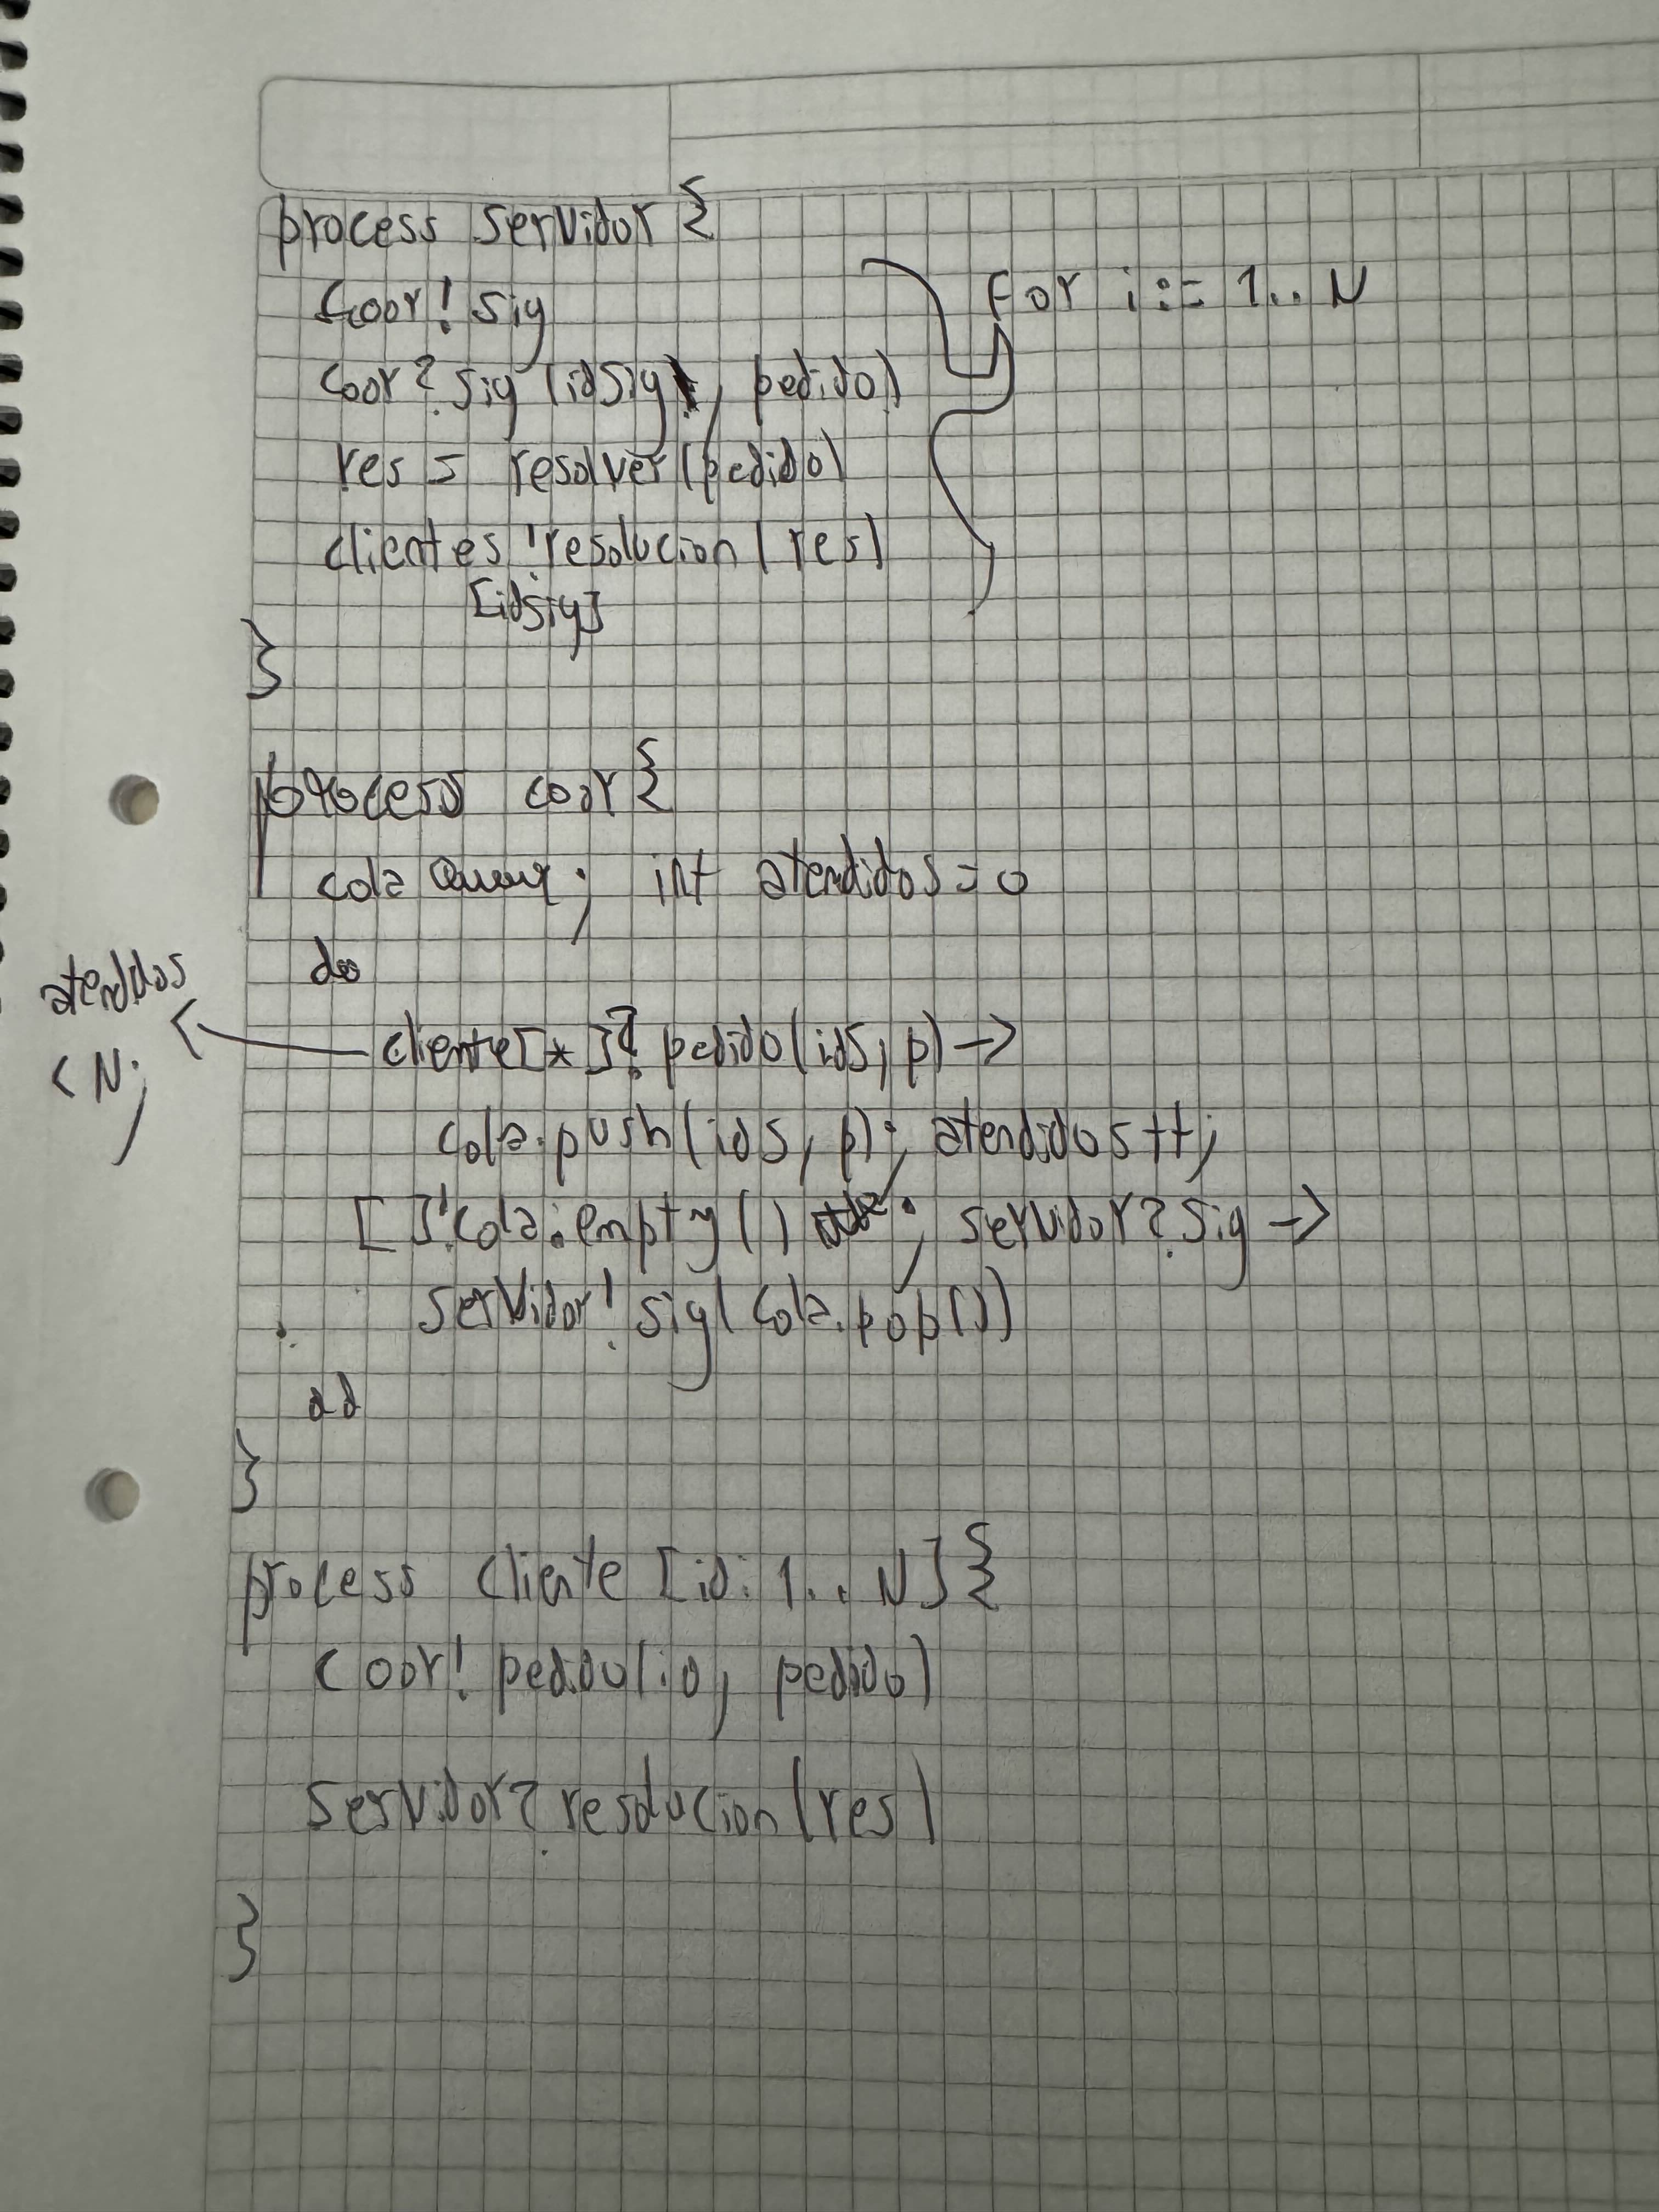 process servidor {
for i := 1.. N
coor! sig
coor? sig (idSig, pedido)
res = resolver(pedido)
clientes !resolucion (res)
[idsig]
}
process coor {
cola ; int atendidos = 0
do
atendidos
< N;
cliente[*]? pedido(idS, p) ->
cola.push(idS, p); atendidos ++;
[] !cola.empty() ; servidor? sig ->
servidor! sig( cola.pop())
od
}
process cliente [id: 1.. N] {
coor! pedido(id, pedido)
servidor? resolucion (res)
}